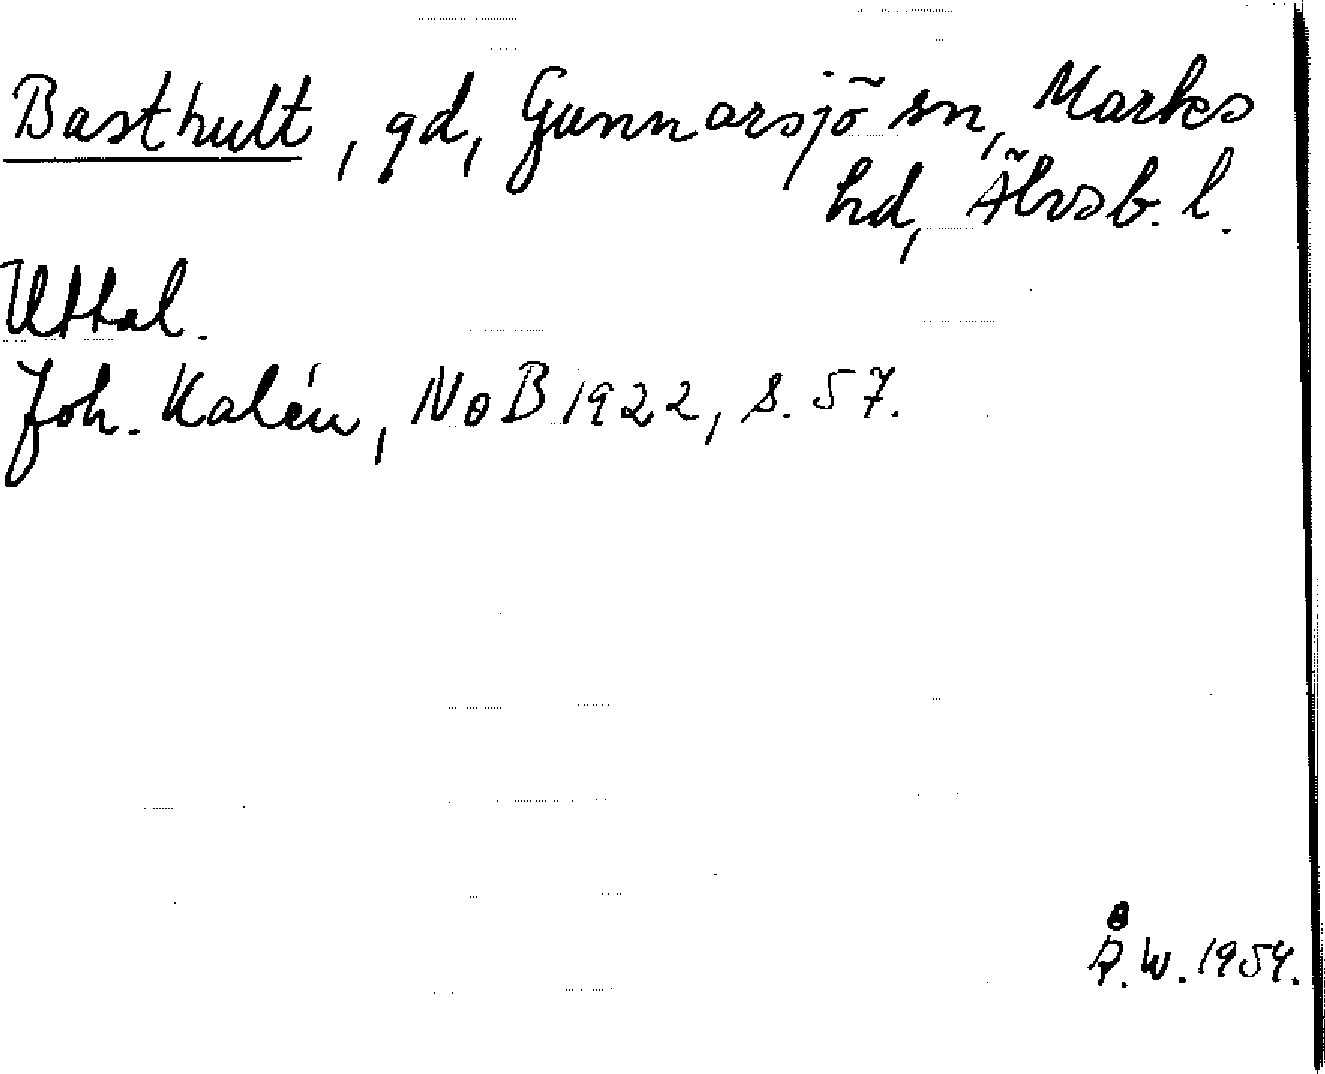 Basthult, gd, Gunnarsjö sn, Marks
hd, Älvsb. l.
Uttal.
Joh. Kalén, NoB 1922, s. 57.
Å. W. 1954.